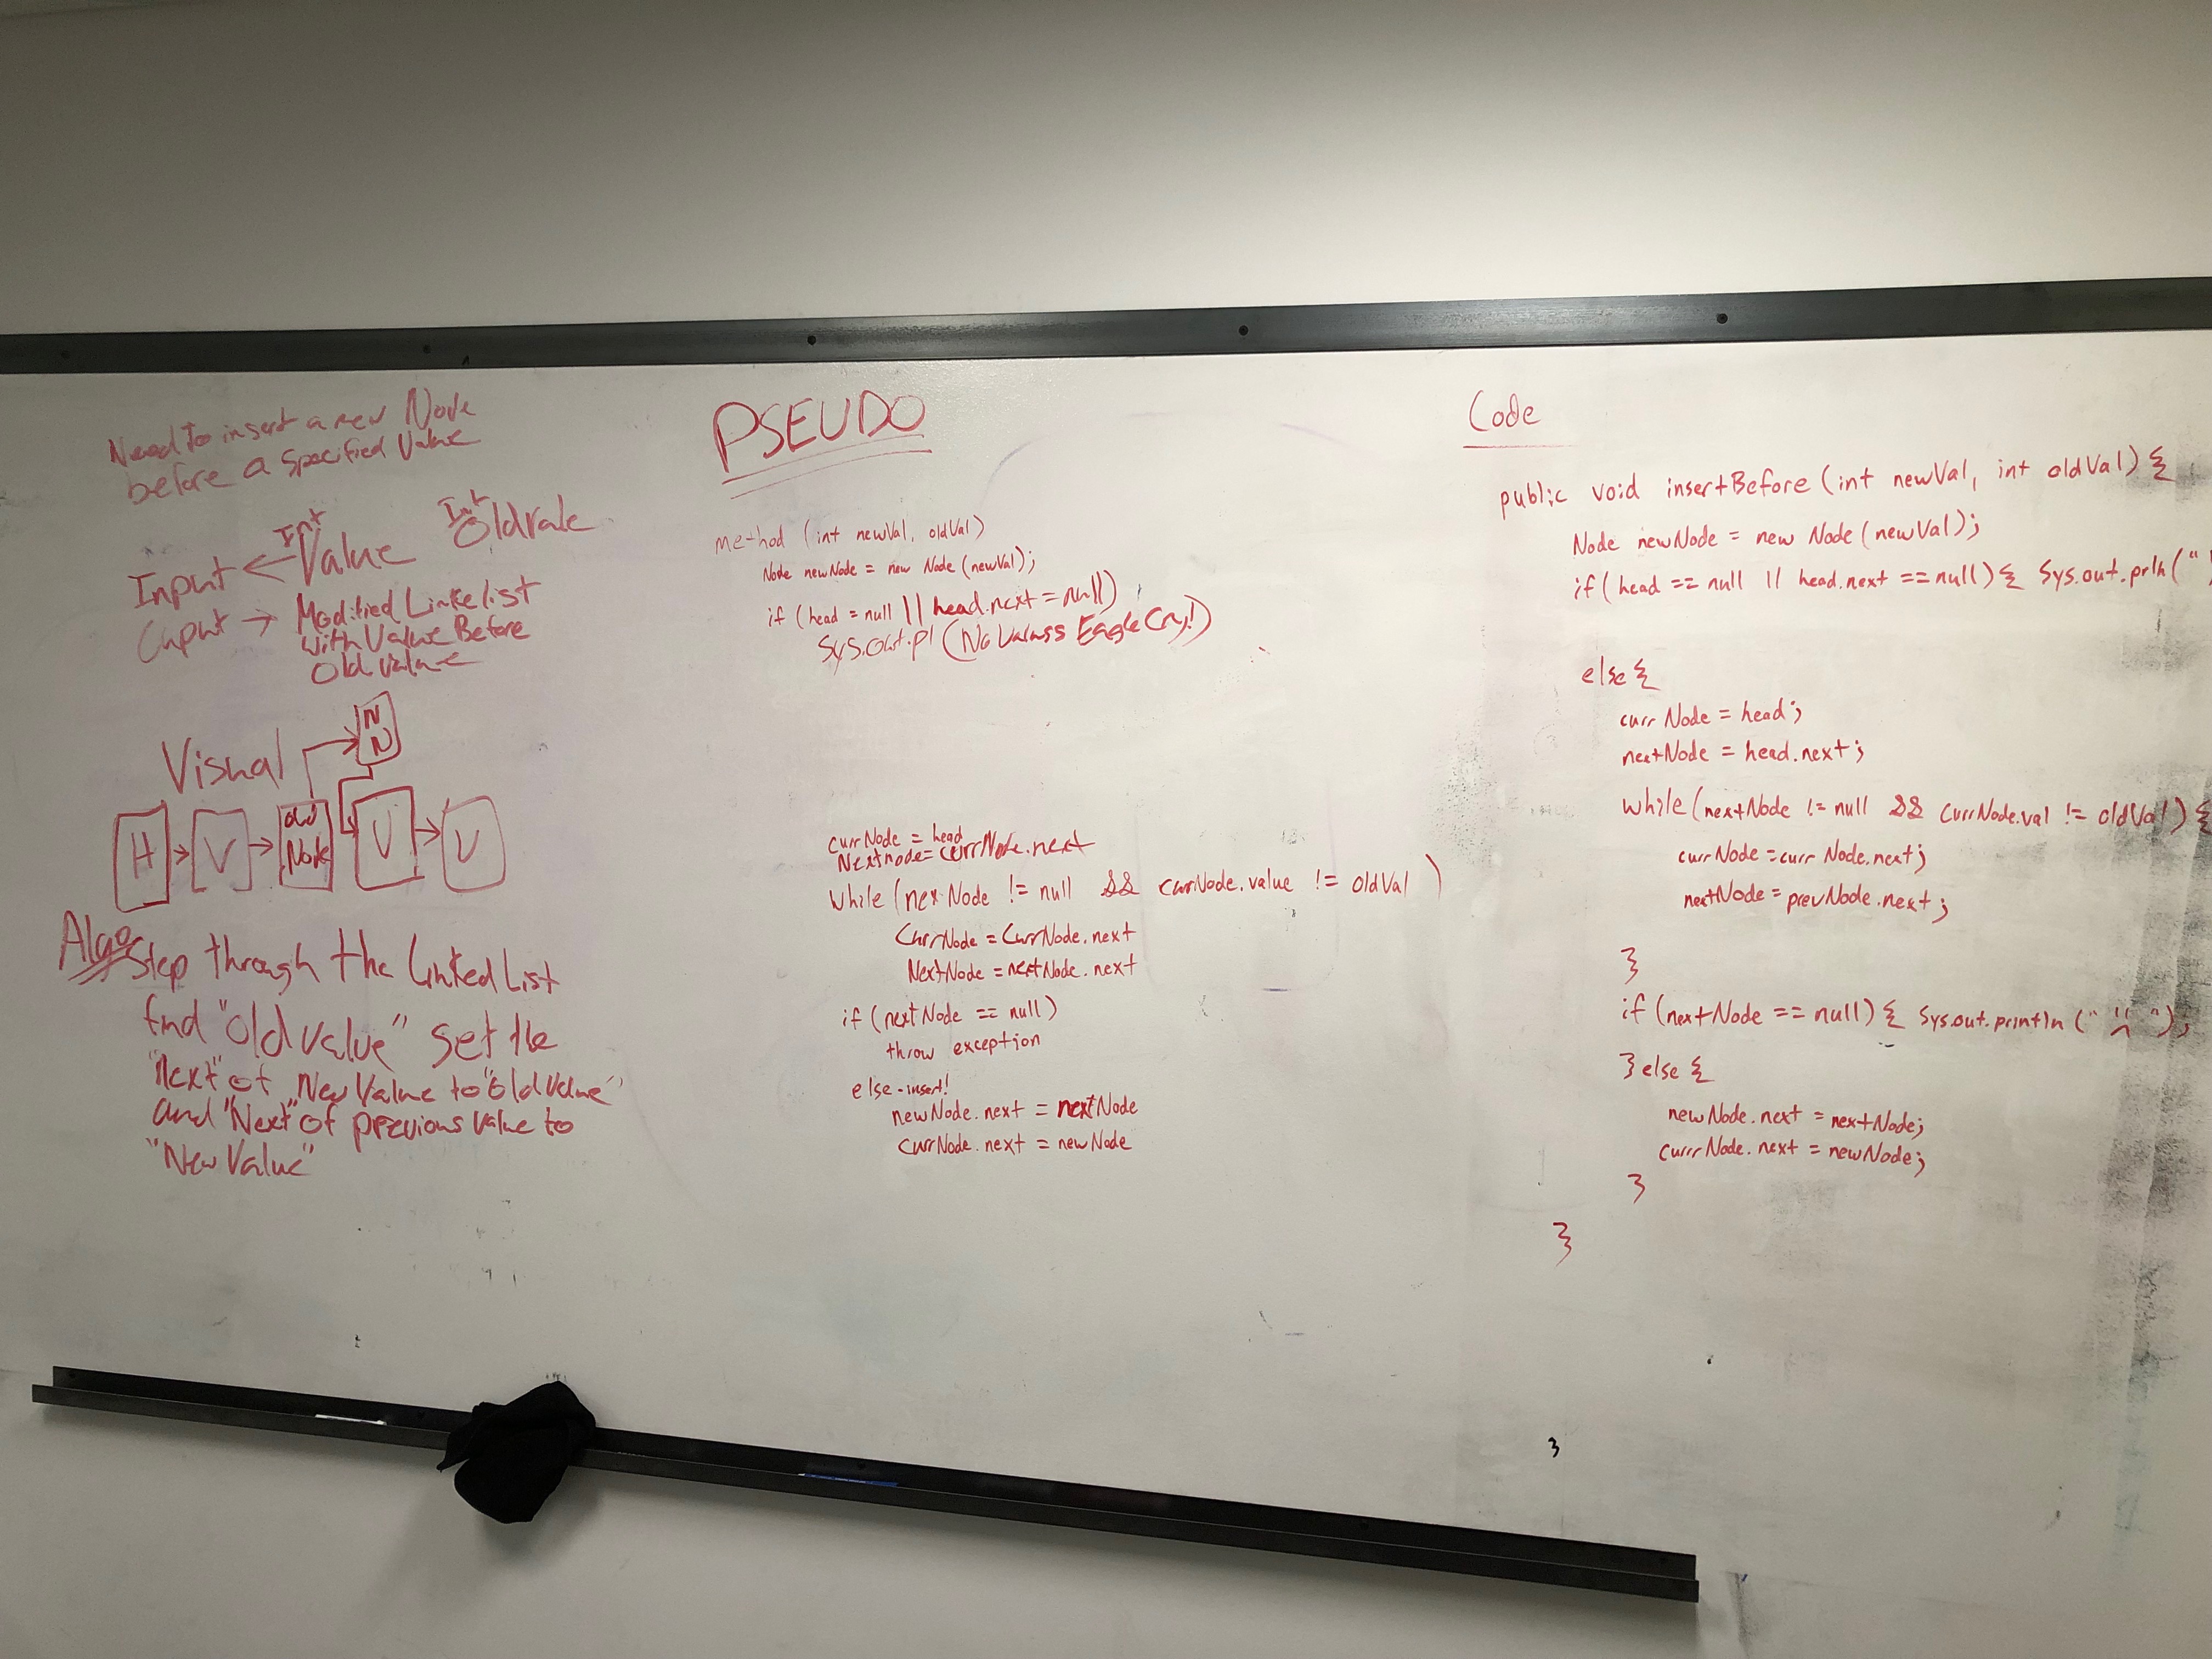 Need to insert a new Node
before a specified Value
Int Int
Input ← Value Old vale
Ouput → Modified Linke list
with Value Before
Old value
Visual
N
N
H → V → old Node V → V
Algo
Step through the Linked List
find "old value" set the
"Next" of New Value to "old value"
and "Next" of previous value to
"New Value"
PSEUDO
method (int newVal, oldVal)
Node newNode = new Node (newVal);
if (head = null || head.next = null)
Sys.out.pl (No Eagle Cry!)
currNode = head
Nextnode = currNode.next
while (nexNode != null && currNode.value != oldVal )
CurrNode = CurrNode.next
NextNode = nextNode.next
if (nextNode == null)
throw exception
else - insert!
newNode.next = nextNode
currNode.next = newNode
Code
public void insertBefore (int newVal, int oldVal) {
Node newNode = new Node (newVal);
if ( head == null || head.next == null) { Sys.out.prln ("
else {
curr Node = head;
nextNode = head.next;
while (nextNode != null && currNode.val != oldVal) {
currNode = curr Node.next;
nextNode = prevNode.next;
}
if (nextNode == null) { Sys.out.println (" ");
} else {
newNode.next = nextNode;
currr Node.next = newNode;
}
}
}